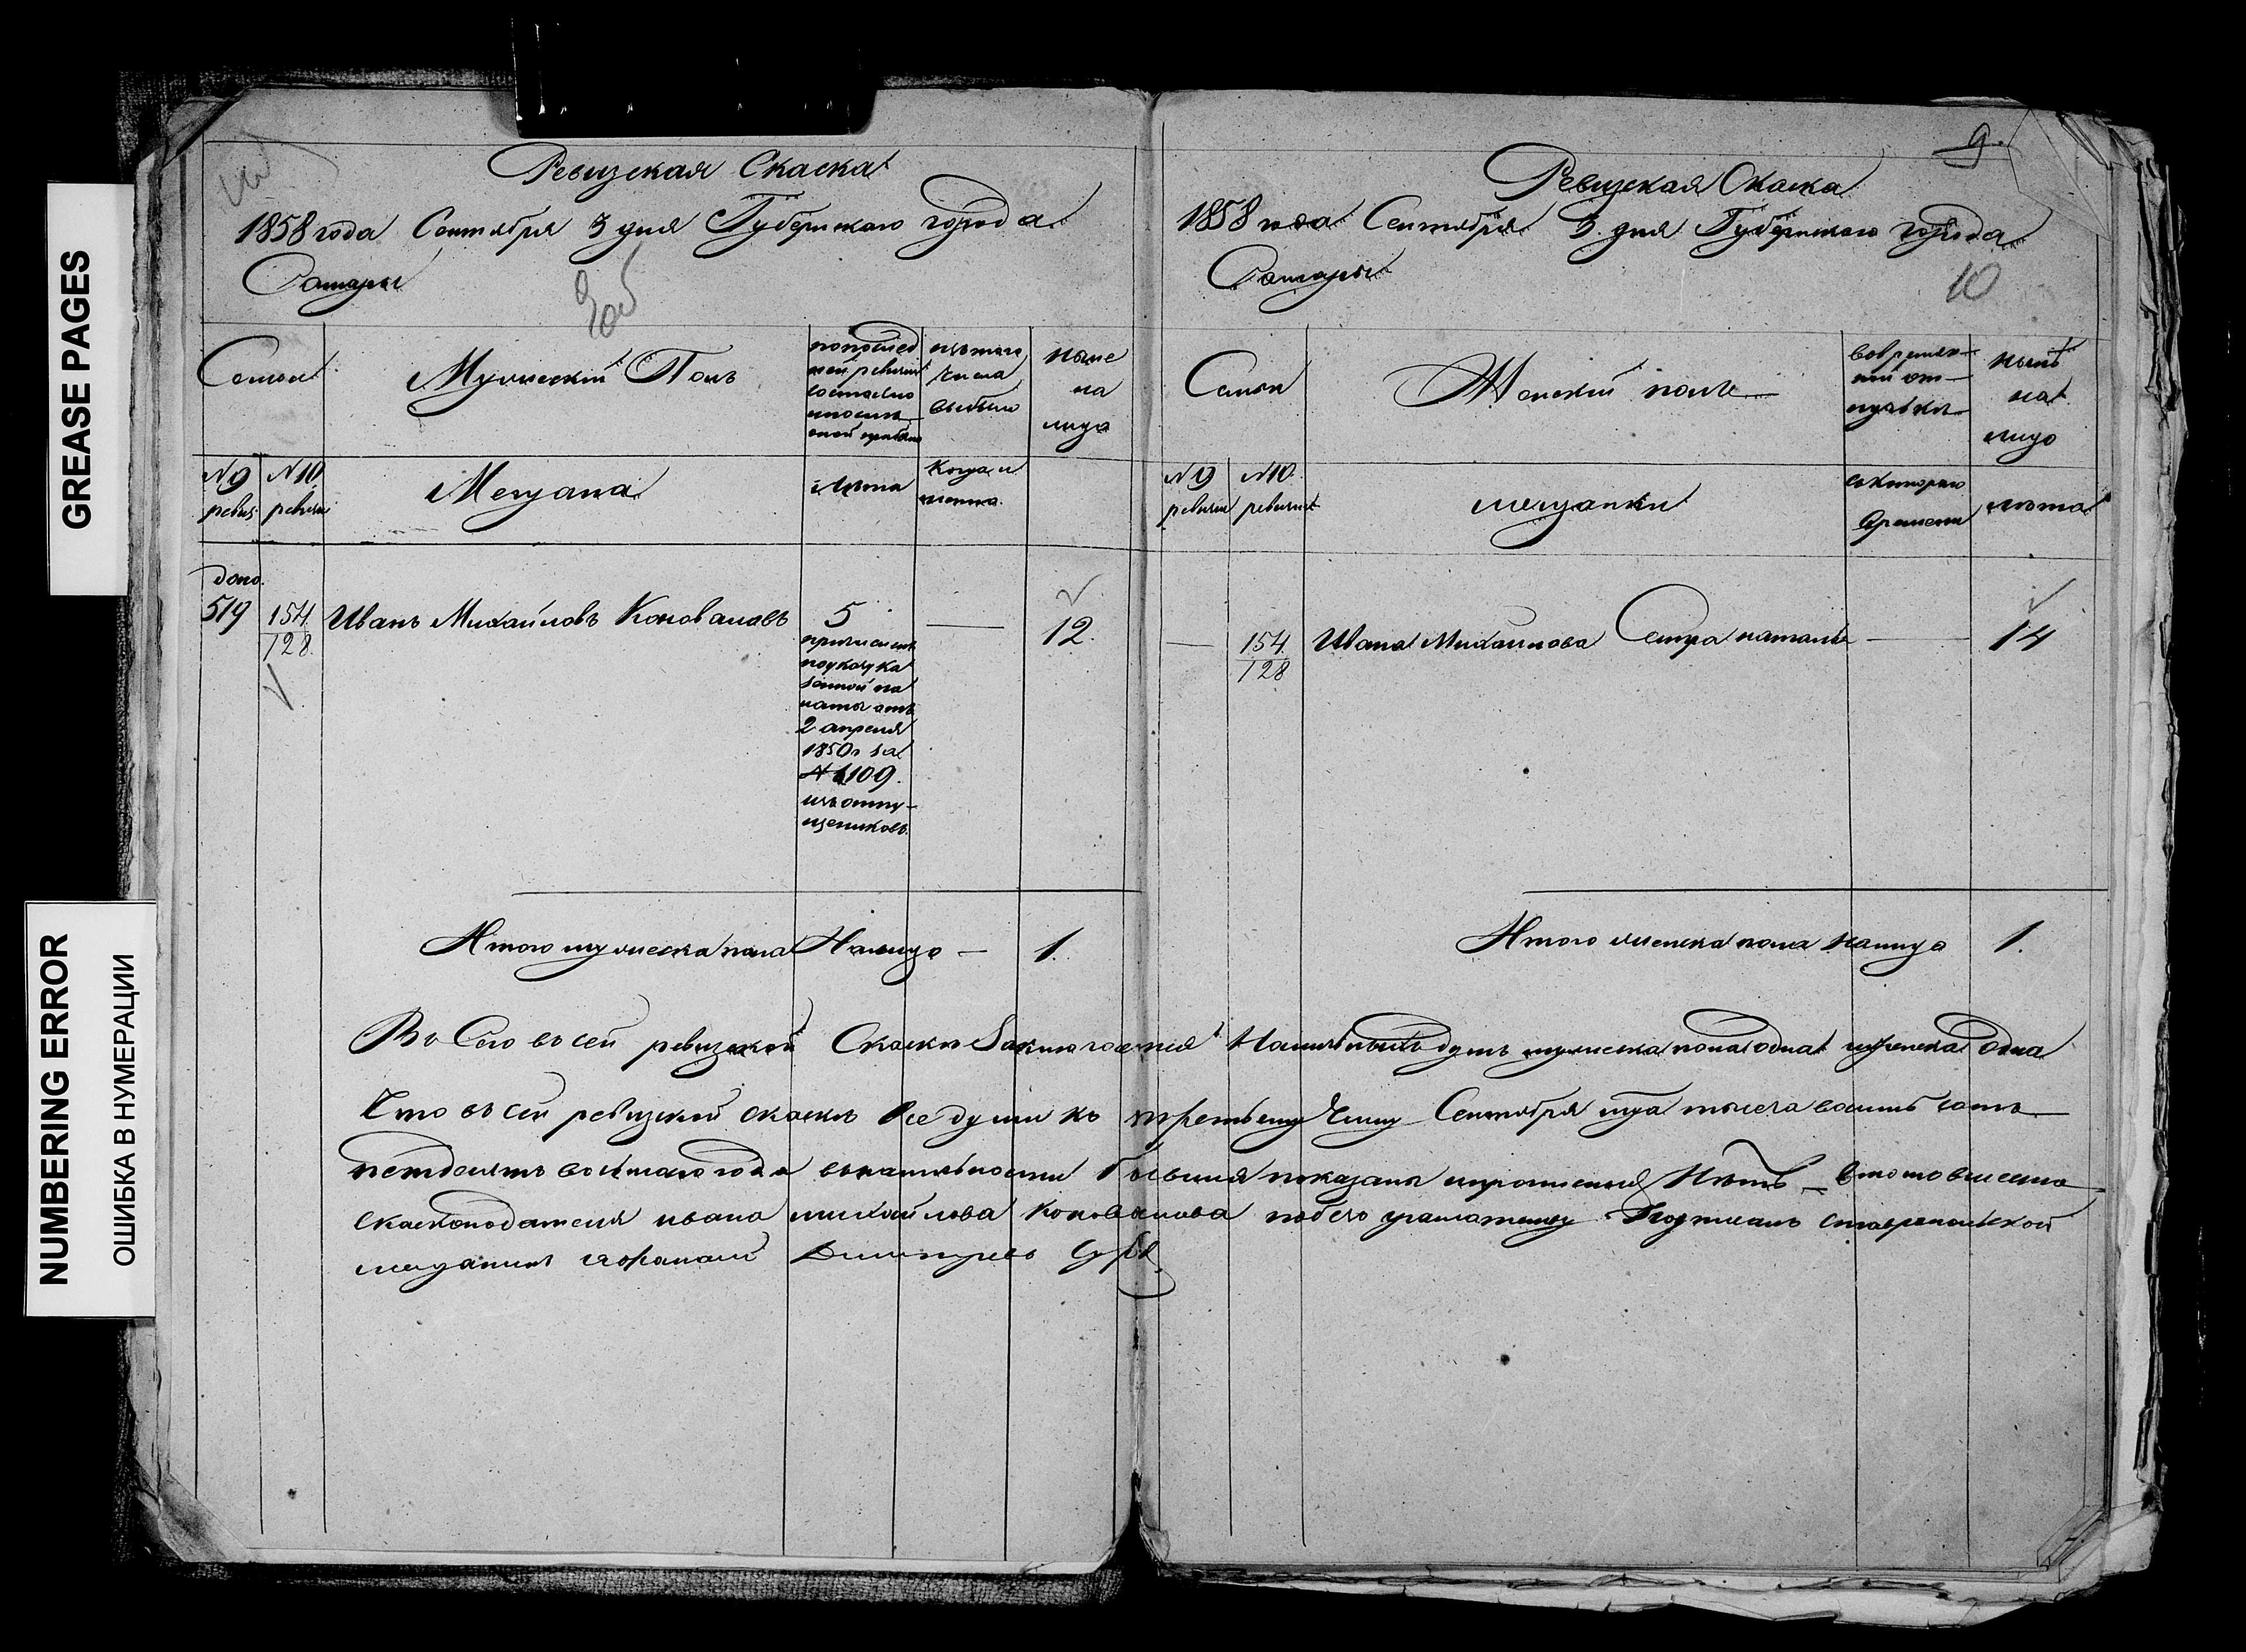 GREASE PAGES
NUMBERING ERROR
ОШИБКА В НУМЕРАЦИИ
Ревизская Скаска
1858 года Сентября 3 дня Губернскаго города
Самары
Семьи
Мужеский Полъ
по послед
ней ревизии
состояло
изъ того
числа
выбыло
ныне
на
лицо
№ 9
ревиз.
№ 10.
ревизии
Мещана
лета
Когда и
допо.
519
154.
128.
Иванъ Михайловъ Коноваловъ
5
причисленъ
по указу ка
зенной па
латы отъ
2 апреля
1850 г за
№ 1109.
изъ отпу-
щениковъ.
12.
Итого мужеска пола На лицо — 1.
9.
Ревизская Скаска
1858 года Сентября 3. дня Губернскаго города
Самары
10
Семьи
Женский полъ
во времен-
ной от-
лучке
ныне
на
лицо
№ 9
ревизии
№ 10.
ревизии
мещанки
съ котораго
времени
лета
154
128
Ивана Михаилова Сестра наталья
14
Итого женска пола на лицо 1.
Въ сей ревизской Скаске Заключается На лицо душъ мужеска пола одна женска одна
Что въ сей ревизской скаске все души къ третьему числу Сентября тысеча восемь сотъ
петдесятъ восьмаго года въ наличности показаны и прописных Нетъ – в том вместо
скаскоподателя ивана михайлова коновалова по его Подписалъ ставропольской
мещанинъ